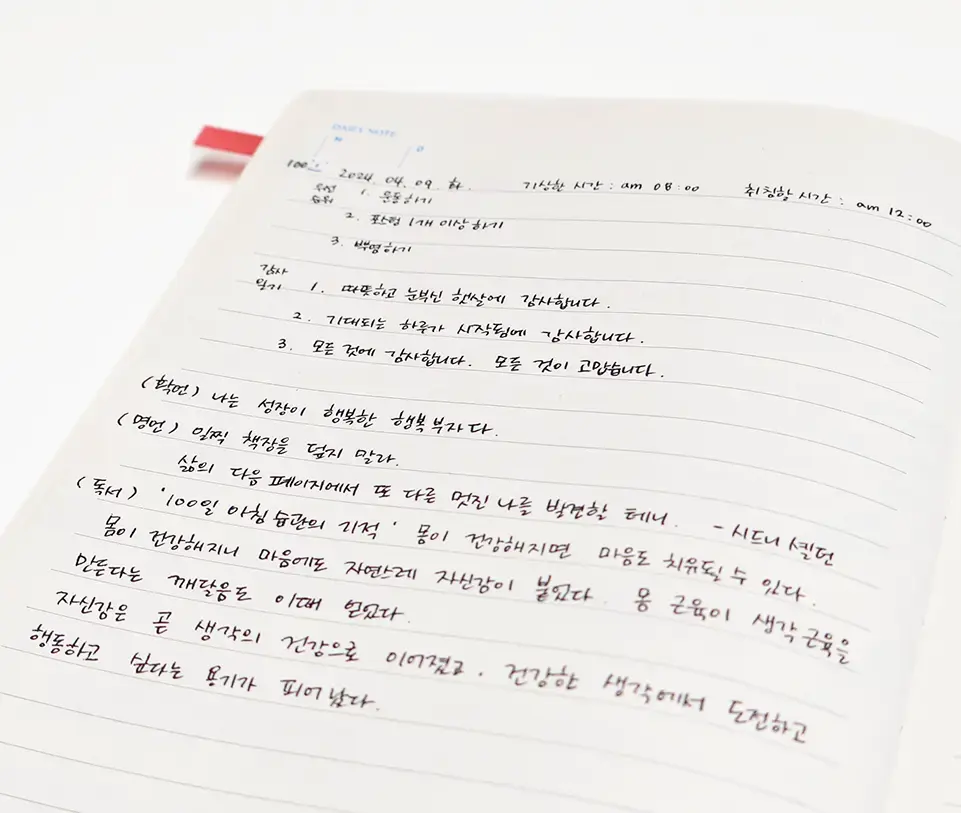 DAILY NOTE
M D
100일
2024. 04. 09. 화. 기상한 시간 : am 08:00 취침할 시간 : am 12:00
우선 1. 운동하기
순위
2. 포스팅 1개 이상 하기
3. 빡영하기
감사
일기 1. 따뜻하고 눈부신 햇살에 감사합니다.
2. 기대되는 하루가 시작됨에 감사합니다.
3. 모든 것에 감사합니다. 모든 것이 고맙습니다.
(확언) 나는 성장이 행복한 행복 부자다.
(명언) 일찍 책장을 덮지 말라.
삶의 다음 페이지에서 또 다른 멋진 나를 발견할 테니. - 시드니 셸던
(독서) '100일 아침 습관의 기적' 몸이 건강해지면 마음도 치유될 수 있다.
몸이 건강해지니 마음에도 자연스레 자신감이 붙었다. 몸 근육이 생각 근육을
만든다는 깨달음도 이때 얻었다.
자신감은 곧 생각의 건강으로 이어졌고. 건강한 생각에서 도전하고
행동하고 싶다는 용기가 피어났다.